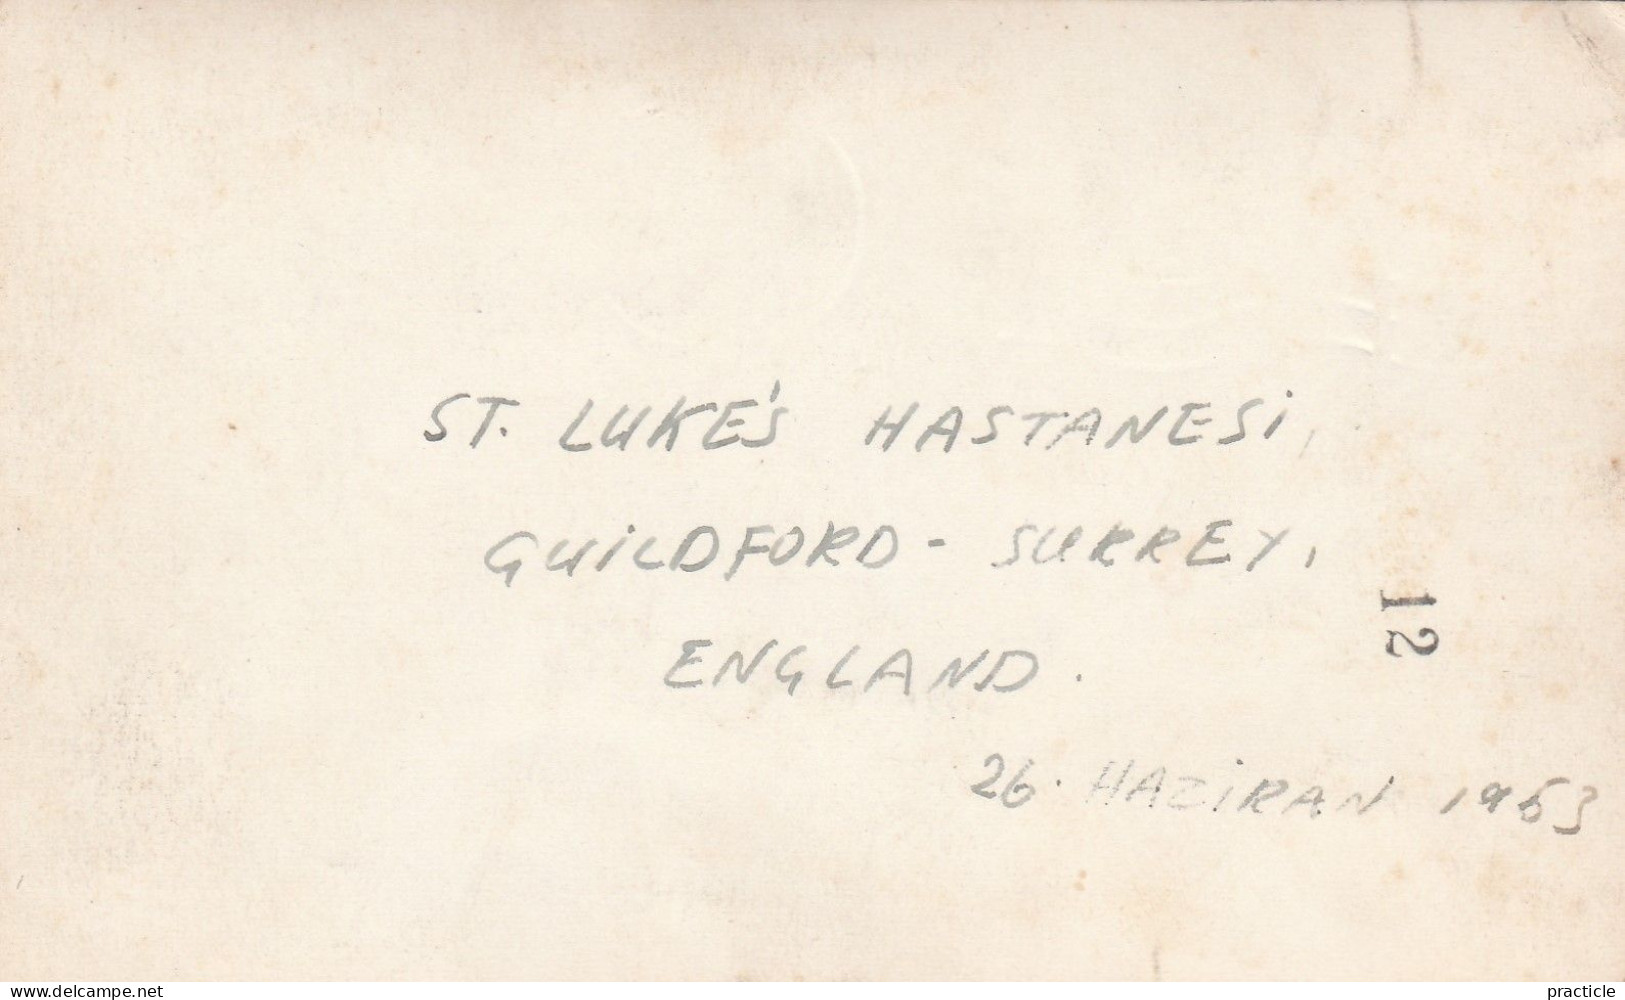 ST. LUKE'S HASTANESİ,
GUİLDFORD - SURREY,
ENGLAND.
12
26. HAZİRAN 1953
www.delcampe.net
practicle